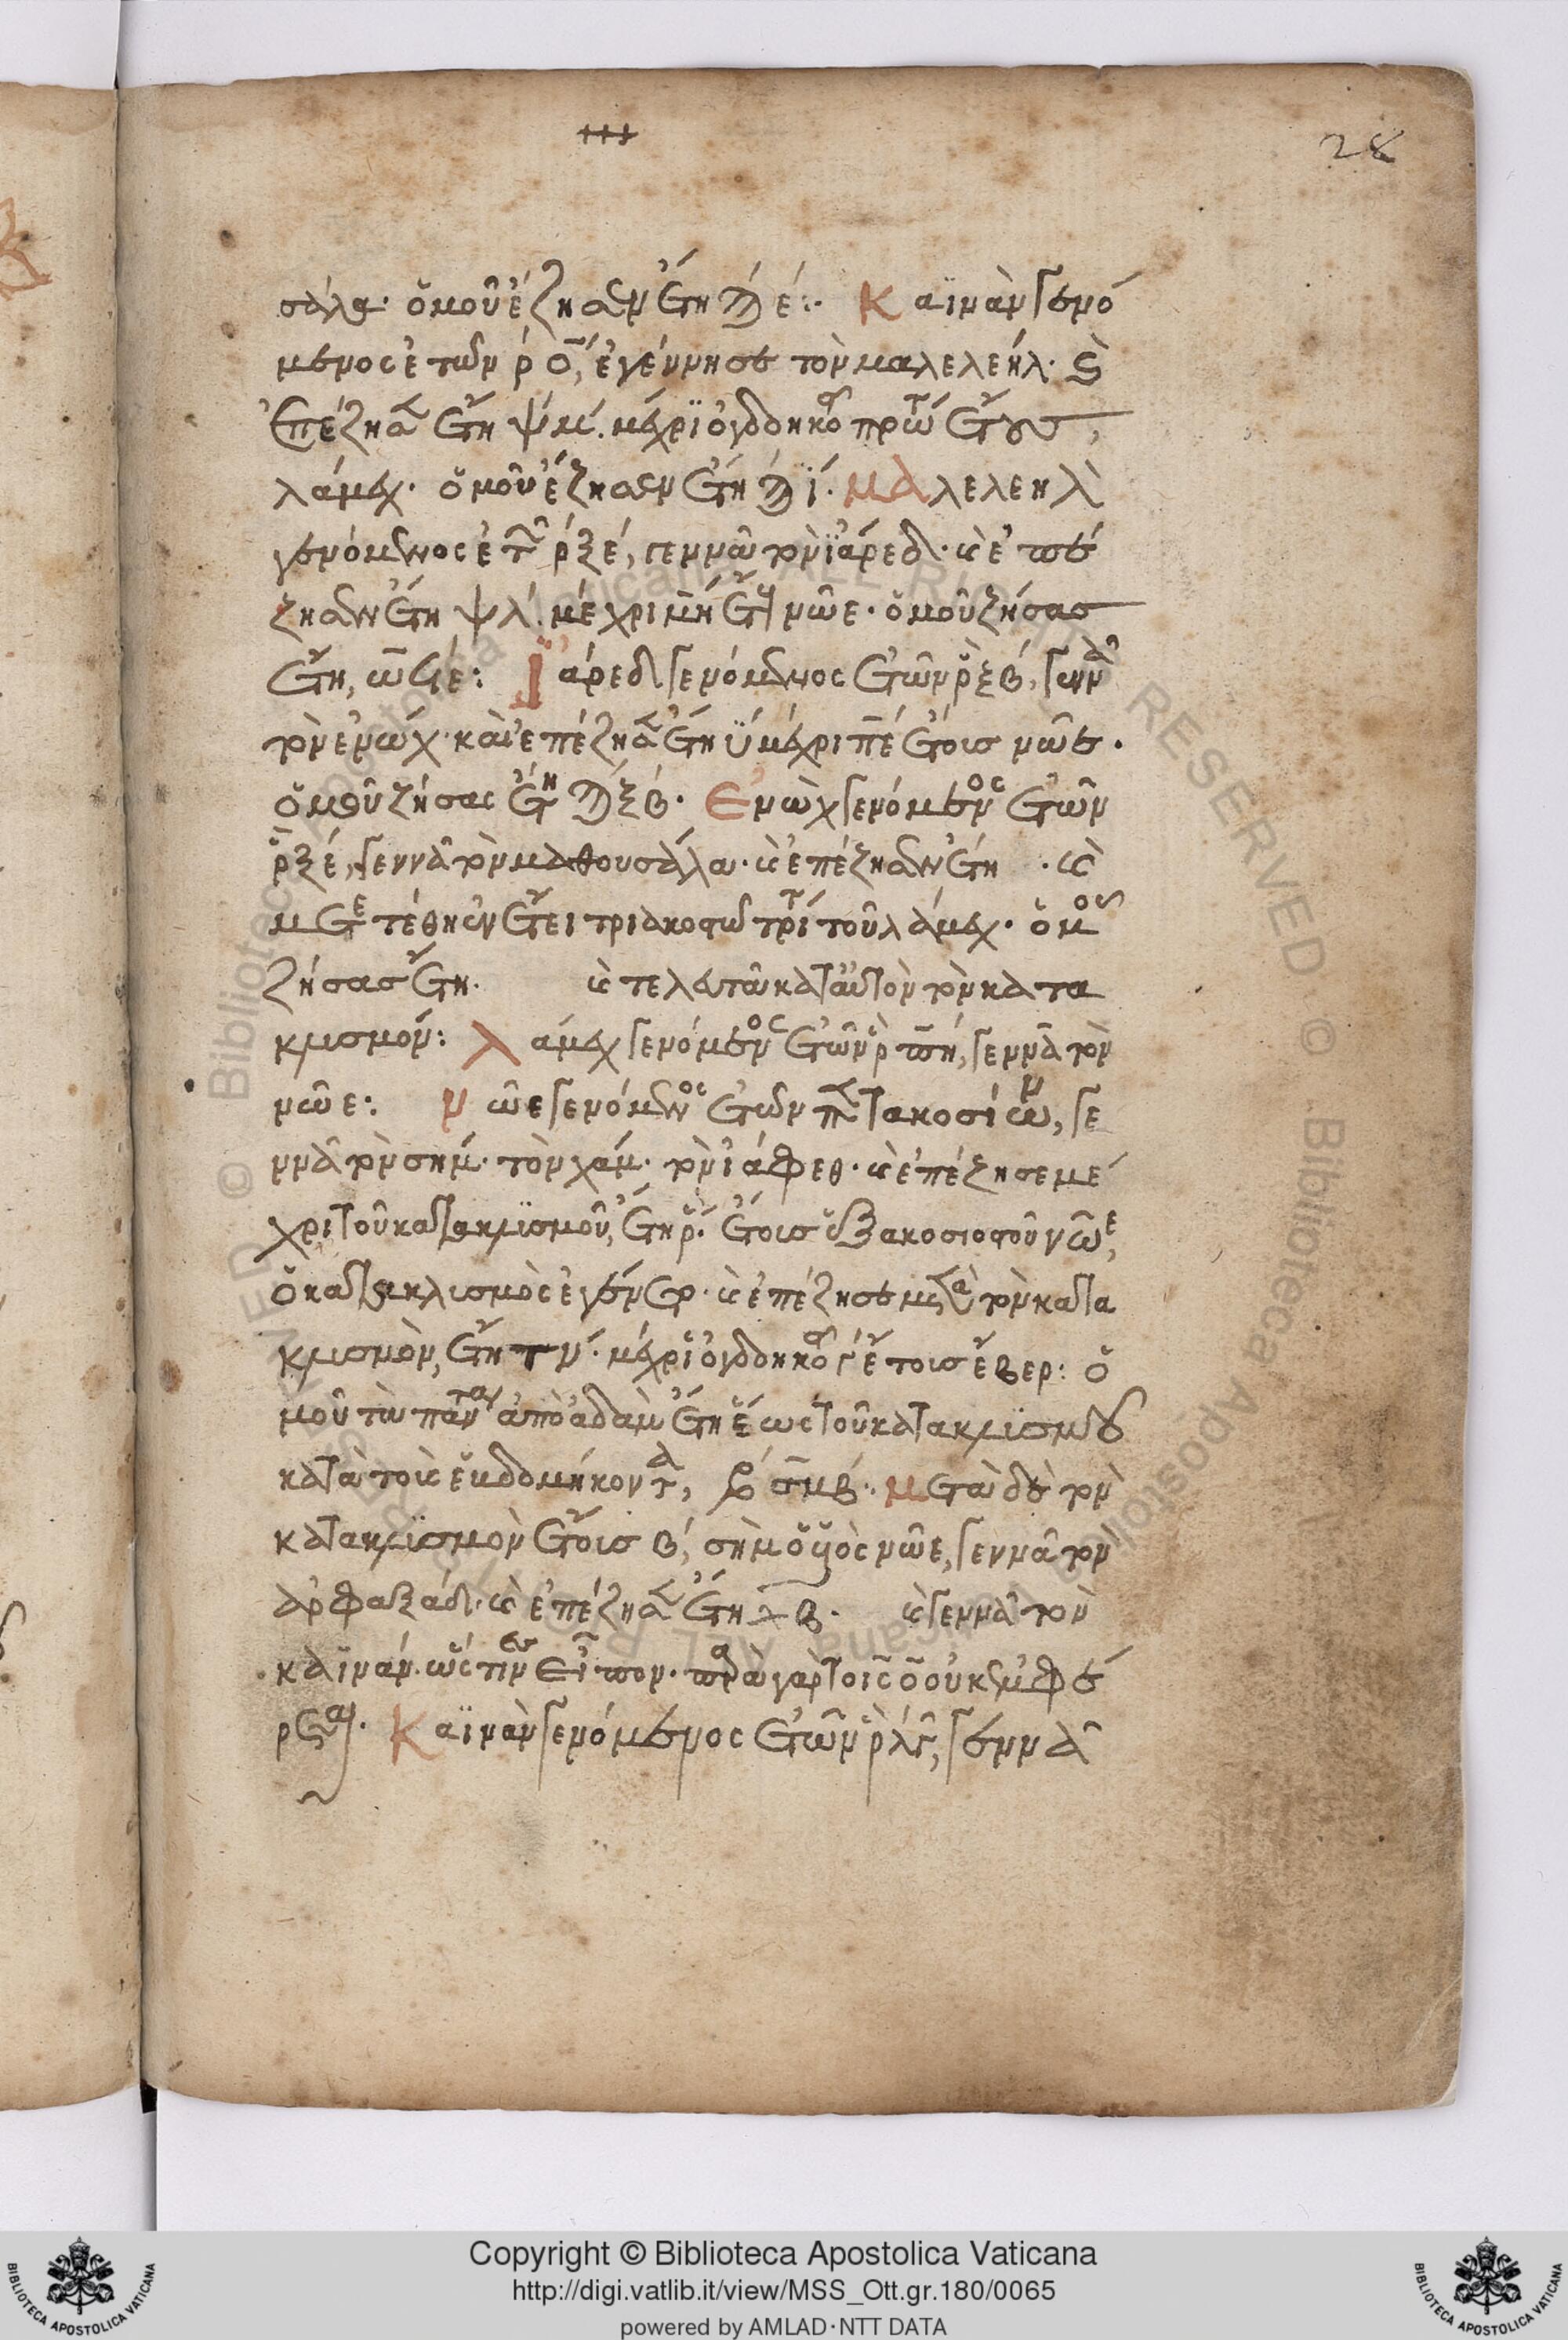 28
σάλα· ὁμοῦ ἔζησεν ἔτη ϡ έ:· Καϊνὰν γενό
μενος ἐτῶν ρ ο, ἐγέννησε τὸν μαλελεήλ· ϗ
ἐπέζησεν ἔτη ψμ. μέχρι ὀγδοηκοστοῦ πρώτου ἔτους,
λάμεχ· ὁμοῦ ἔζησεν ἔτη ϡϊ. Μαλελεὴλ
γενόμενος ἐτῶν ρξέ, γεννᾶ τὸν ϊάρεδ· ϗ ἐπέ
ζησεν ἔτη ψλ. μέχρι μη ἔτους νῶε· ὁμοῦ ζήσας
ἔτη, ωϟέ: Ϊάρεδ γενόμενος ἐτῶν ρξβ, γεννᾶ
τὸν ἐνώχ· καὶ ἐπέζησεν ἔτη ϋ μέχρι πέ ἔτους νῶε·
ὁμοῦ ζήσας ἔτη ϡξβ· Ἐνὼχ γενόμενος ἐτῶν
ρξέ, γεννᾶ τὸν μαθουσάλα· ϗ ἐπέζησεν ἔτη · ϗ
μετετέθη ἐν ἔτει τριακοστῶ τρίτω τοῦ λάμεχ· ὁμοῦ
ζήσας ἔτη. ϗ τελευτᾶ κατ' αὐτὸν τὸν κατα
κλισμόν: Λάμεχ γενόμενος ἐτῶν ρπη, γεννᾶ τὸν
νῶε: Νῶε γενόμενος ἐτῶν πεντακοσίων, γε
ννᾶ τὸν σήμ· τὸν χάμ· τὸν ϊάφεθ· ϗ ἐπέζησε μέ
χρι τοῦ κατακλισμοῦ, ἔτη ρ. ἔτους ἑξακοσιοστοῦ νῶε,
ὁ κατακλισμὸς ἐγένετο· ϗ ἐπέζησε μετὰ τὸν κατα
κλισμὸν, ἔτη τν· μέχρι ὀγδοηκοστοῦ γ ἔτους ἔβερ: ὁ
μοῦ τὰ πάντα ἀπὸ ἀδὰμ ἔτη ἕως τοῦ κατακλισμοῦ
κατὰ τοὺς ἑβδομήκοντα, ͵βσμβ· Μετὰ δὲ τὸν
κατακλισμὸν ἔτους β, σὴμ ὁ υἱὸς νῶε, γεννᾶ τὸν
ἀρφαξάδ· ϗ ἐπέζησεν ἔτη τλβ. ϗ γεννᾶ τὸν
καϊνάν· ὥσπερ εἶπον· παρὰ γὰρ τοῖς ο οὐκ ἐμφέ
ρεται· Καϊνὰν γενόμενος ἐτῶν ρλγ, γεννᾶ
Copyright © Biblioteca Apostolica Vaticana
http://digi.vatlib.it/view/MSS_Ott.gr.180/0065
powered by AMLAD·NTT DATA